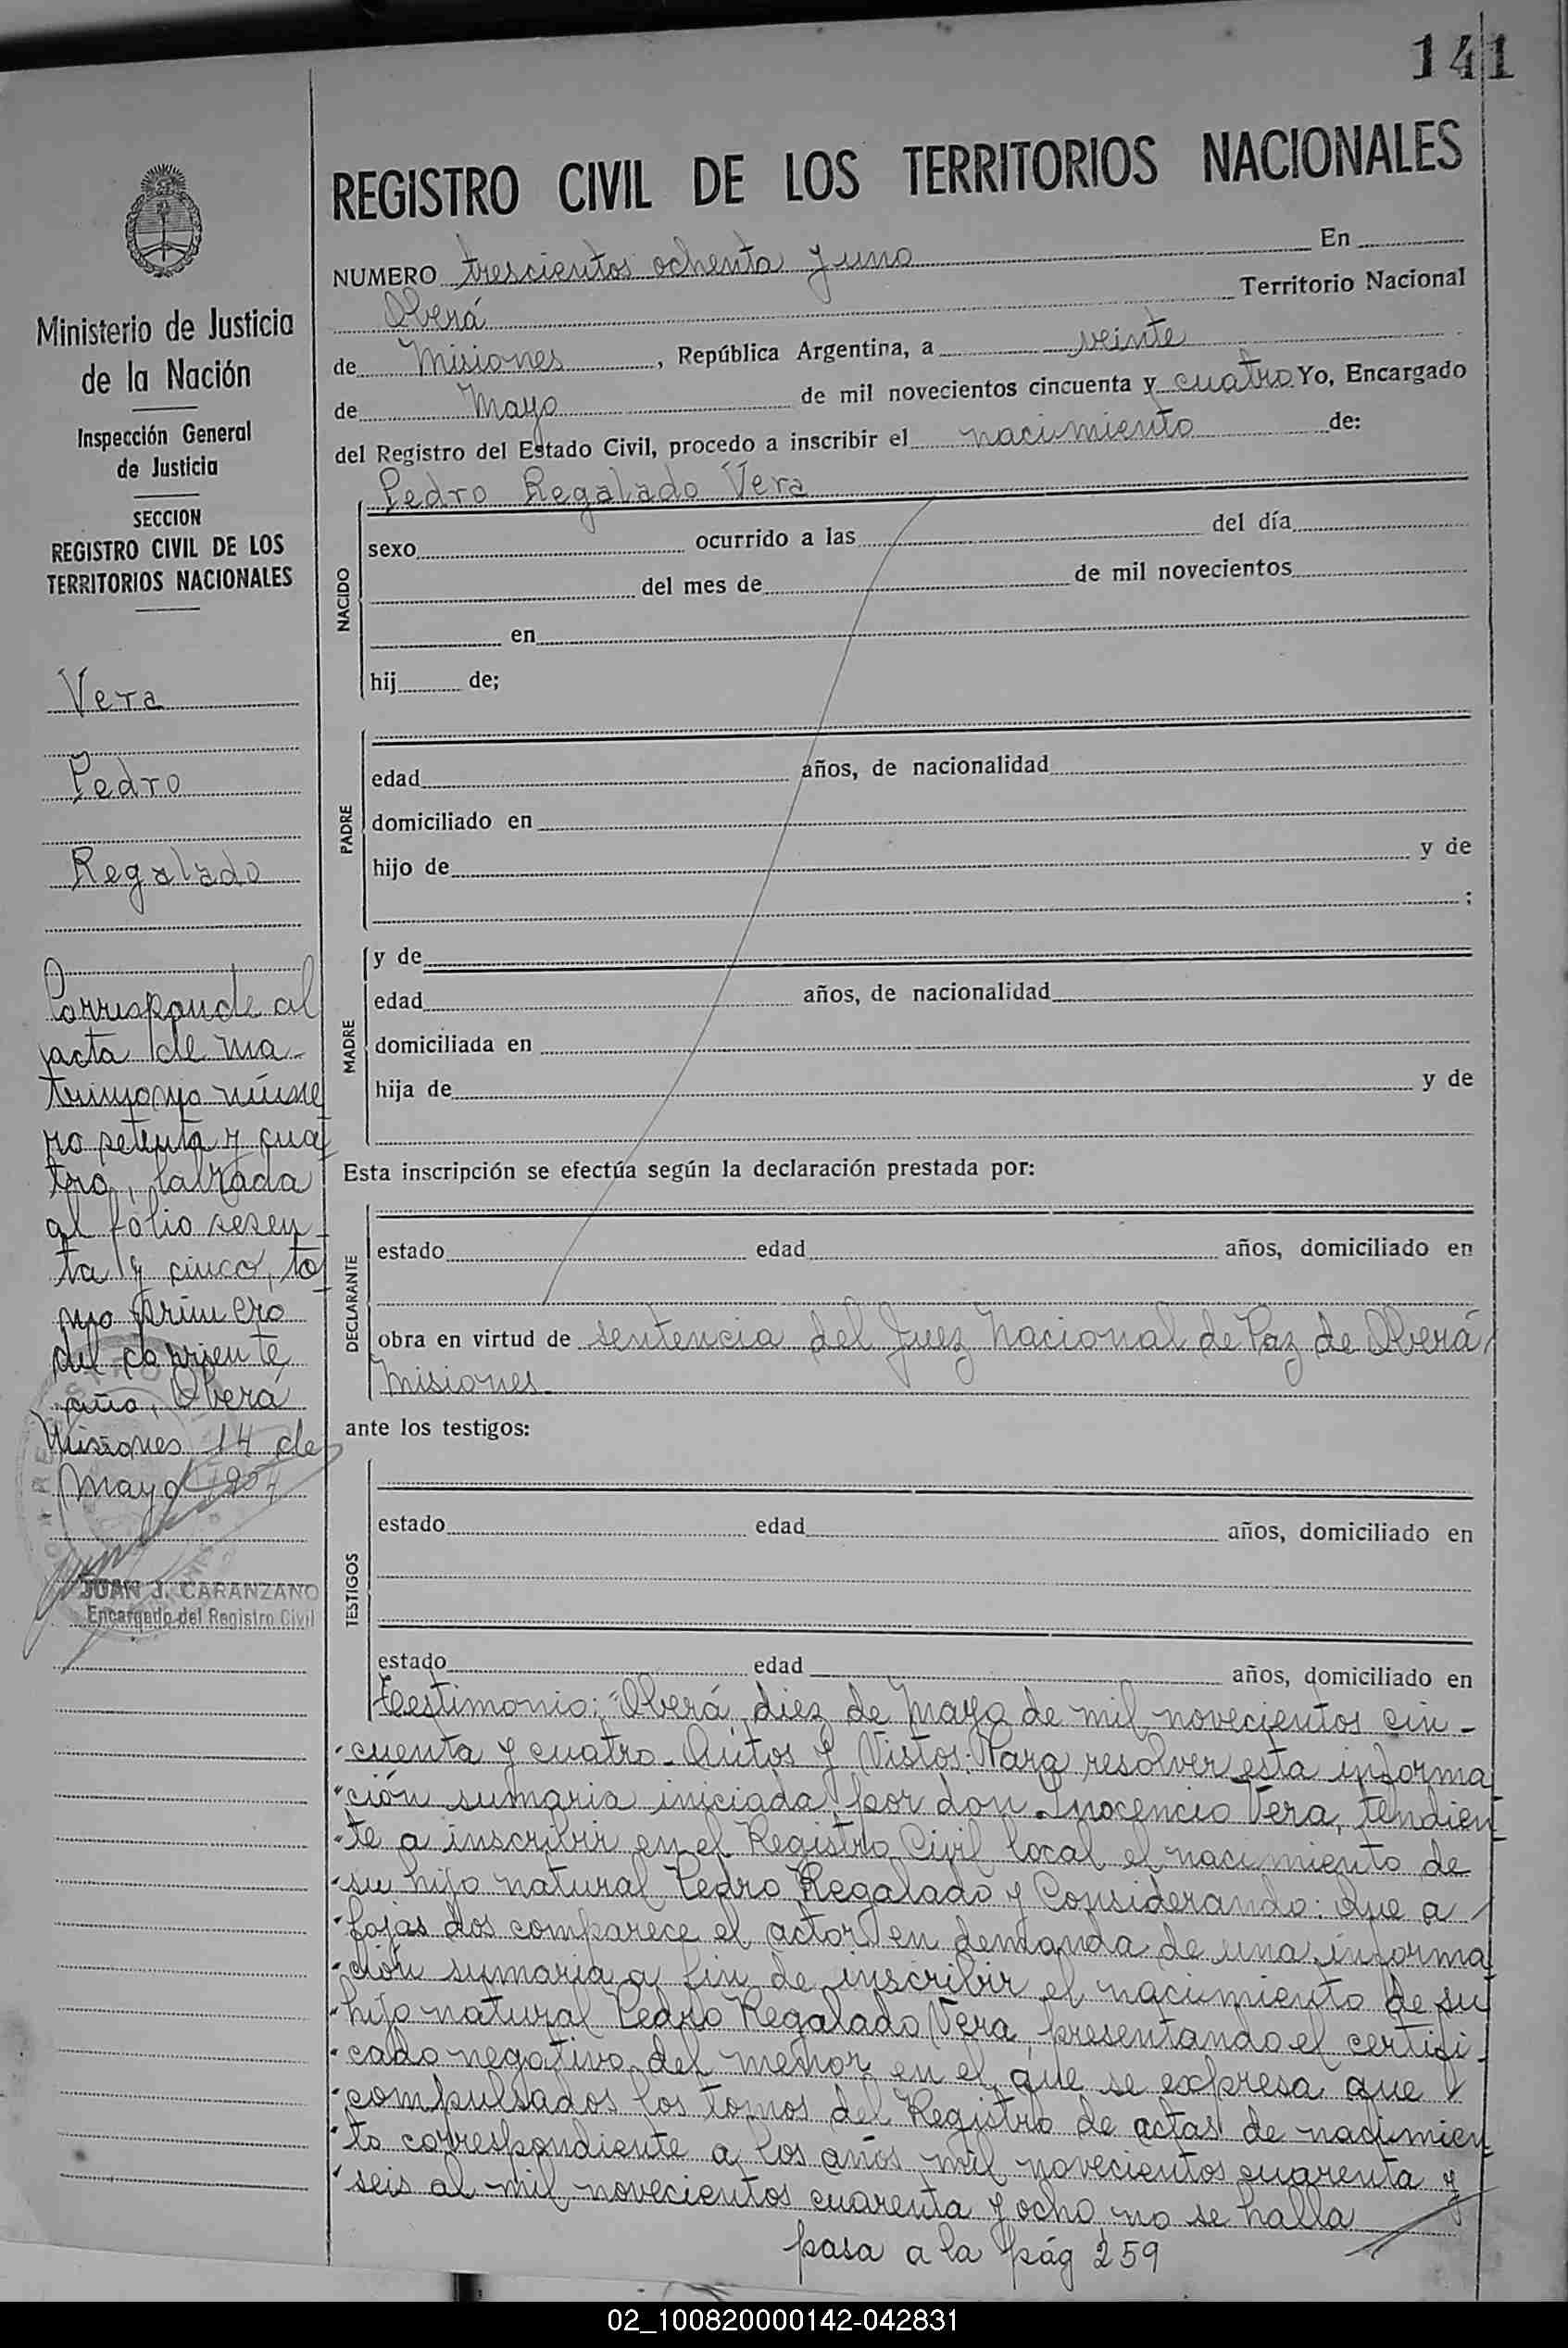 141
REGISTRO CIVIL DE LOS TERRITORIOS NACIONALES
Ministerio de Justicia
de la Nación
Inspección General
de Justicia
SECCION
REGISTRO CIVIL DE LOS
TERRITORIOS NACIONALES
Vera
Pedro
Regalado
Corresponde al
acta de ma-
trimonyo núme
ro setenta y cua
tro, labrada
al folio sesen-
ta y cinco, to
mo primero
del corriente
año, Oberá
Misiones 14 de
Mayo 1954
JUAN J. CARANZANO
Encargado del Registro Civil
NUMERO trescientos ochenta y uno En
Oberá Territorio Nacional
de Misiones, República Argentina, a veinte
de Mayo de mil novecientos cincuenta y cuatro Yo, Encargado
del Registro del Estado Civil, procedo a inscribir el nacimiento de:
Pedro Regalado Vera
NACIDO
sexo ocurrido a las del día
del mes de de mil novecientos
en
hij de;
PADRE
edad años, de nacionalidad
domiciliado en
hijo de y de
;
MADRE
y de
edad años, de nacionalidad
domiciliada en
hija de y de
Esta inscripción se efectúa según la declaración prestada por:
DECLARANTE
estado edad años, domiciliado en
obra en virtud de sentencia del Juez Nacional de Paz de Oberá,
Misiones
ante los testigos:
TESTIGOS
estado edad años, domiciliado en
estado edad años, domiciliado en
Testimonio: "Oberá, diez de Mayo de mil novecientos cin-
"cuenta y cuatro. Autos y Vistos: Para resolver esta informa
"ción sumaria iniciada por don Inocencio Vera, tendien
"te a inscribir en el Registro Civil local el nacimiento de
"su hijo natural Pedro Regalado y Considerando: Que a
"fojas dos comparece el actor en demanda de una informa
"ción sumaria a fin de inscribir el nacimiento de su
"hijo natural Pedro Regalado Vera, presentando el certifi-
"cado negativo del menor en el que se expresa que
"compulsados los tomos del Registro de actas de nacimien
"to correspondiente a los años mil novecientos cuarenta y
"seis al mil novecientos cuarenta y ocho no se halla
pasa a la pág 259
02_100820000142-042831